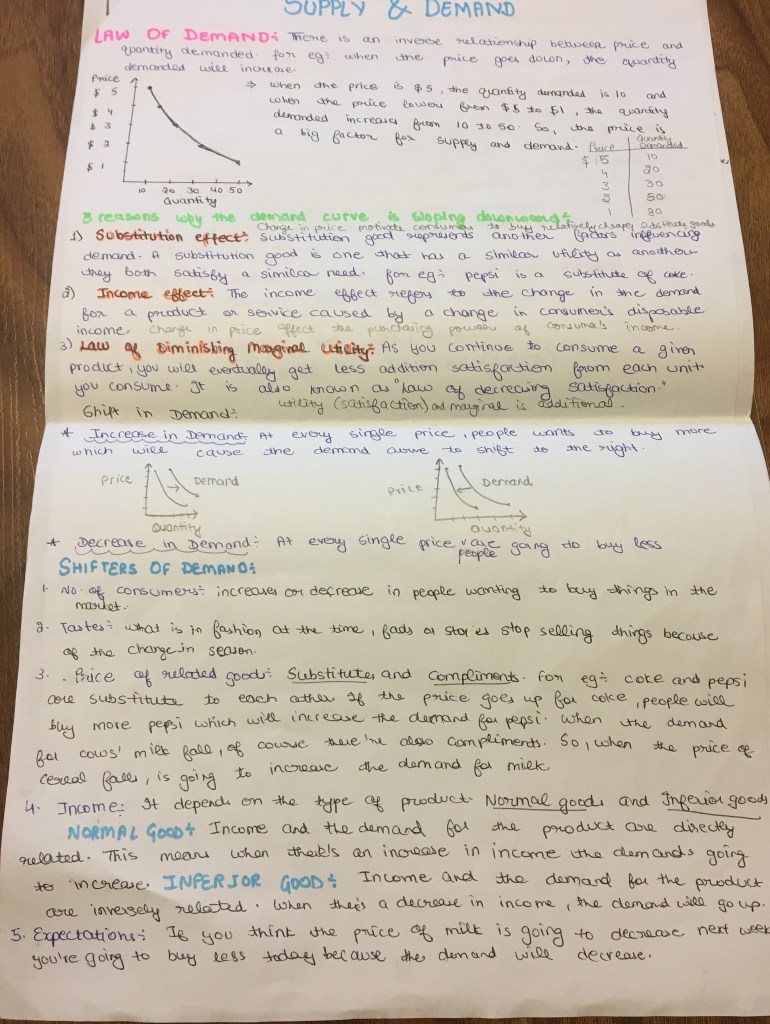 SUPPLY & DEMAND
LAW OF DEMAND: There is an inverse relationship between price and
quantity demanded. for eg: when the price goes down, the quantity
demanded will increase.
Price
$ 5
$ 4
$ 3
$ 2
$ 1
10 20 30 40 50
Quantity
⇒ when the price is $5, the quantity demanded is 10 and
when the price lowers from $5 to $1, the quantity
demanded increases from 10 to 50. So, the price is
a big factor for supply and demand.
Price Quantity Demanded
$ 5 10
4 20
3 30
2 50
1 80
3 reasons why the demand curve is sloping downward:
Change in price motivate consumers to buy relatively cheaper substitute goods
1) Substitution effect: Substitution good represents another factors influencing
demand. A substitution good is one that has a similar utility as another
they both satisfy a similar need. for eg: pepsi is a substitute of coke.
2) Income effect: The income effect refers to the change in the demand
for a product or service caused by a change in consumer's disposable
income. Change in price affect the purchasing power of consumer's income.
3) Law of Diminishing Marginal Utility: As you continue to consume a given
product, you will eventually get less addition satisfaction from each unit
you consume. It is also known as "law of decreasing satisfaction."
utility (satisfaction) and marginal is additional.
Shift in Demand:
* Increase in Demand: At every single price, people wants to buy more
which will cause the demand curve to shift to the right.
Price Demand
Quantity
Price Demand
Quantity
* Decrease in Demand: At every single price people are going to buy less
SHIFTERS OF DEMAND:
1. No. of consumers: increases or decrease in people wanting to buy things in the
market.
2. Tastes: what is in fashion at the time, fads or stores stop selling things because
of the change in season.
3. Price of related good: Substitutes and Compliments. for eg: coke and pepsi
are substitute to each other If the price goes up for coke, people will
buy more pepsi which will increase the demand for pepsi. When the demand
for cows' milk fall, of course there're also compliments. So, when the price of
cereal falls, is going to increase the demand for milk
4. Income: It depends on the type of product. Normal goods and Inferior goods
NORMAL GOOD: Income and the demand for the product are directly
related. This means when there's an increase in income the demands going
to increase. INFERIOR GOOD: Income and the demand for the product
are inversely related. When there's a decrease in income, the demand will go up.
5. Expectations: If you think the price of milk is going to decrease next week
you're going to buy less today because the demand will decrease.